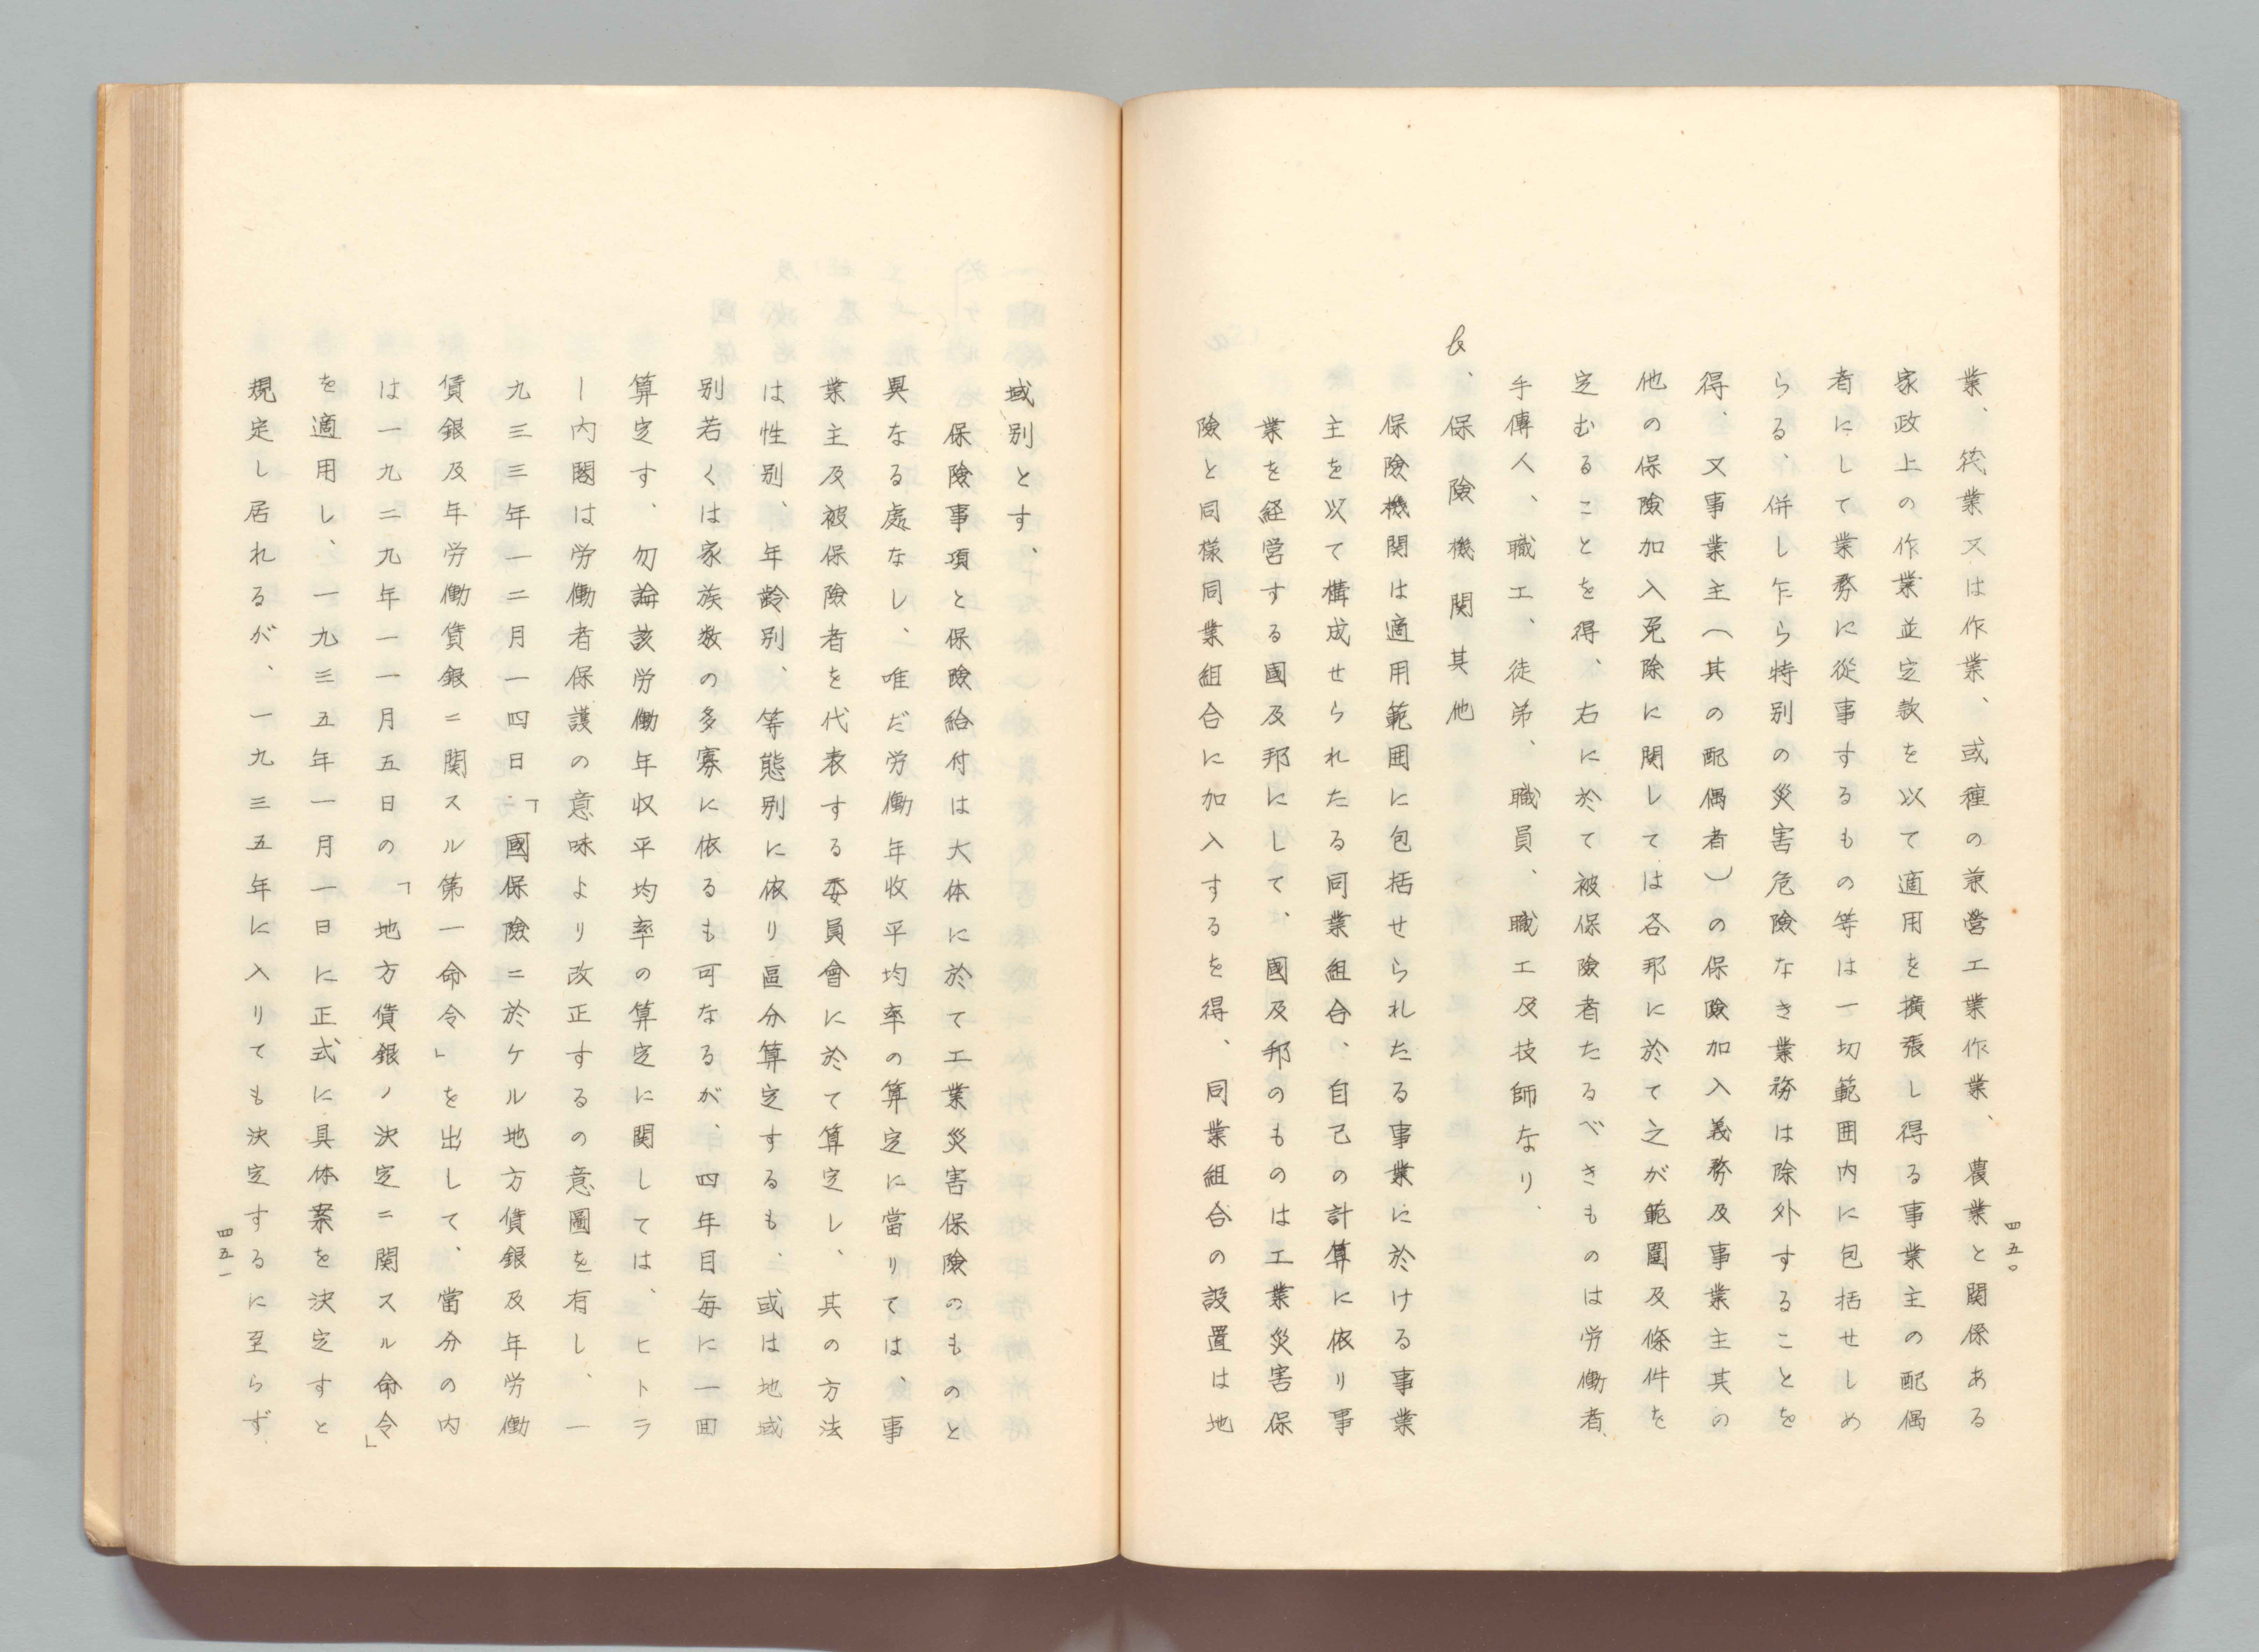 業、䒾業又は作業、或種の兼営工業作業、農業と関係ある
家政上の作業並定款を以て適用を擴張し得る事業主の配偶
者にして業務に從事するもの等は一切範囲内に包括せしめ
らる、併し乍ら特別の災害危険なき業務は除外することを
得、又事業主(其の配偶者)の保険加入義務及事業主其の
他の保険加入免除に関しては各邦に於て之が範圍及條件を
定むることを得、右に於て被保険者たるべきものは労働者、
手傳人、職工、徒弟、職員、職工及技師なり、
b、保険機関其他
保険機関は適用範囲に包括せられたる事業に於ける事業
主を以て構成せられたる同業組合、自己の計算に依り事
業を経営する國及邦にして、國及邦のものは工業災害保
険と同様同業組合に加入するを得、同業組合の設置は地
四五〇
域別とす、
保険事項と保険給付は大体に於て工業災害保険のものと
異なる處なし、唯だ労働年收平均率の算定に當りては、事
業主及被保険者を代表する委員會に於て算定し、其の方法
は性別、年齢別、等態別に依り區分算定するも、或は地域
別若くは家族数の多寡に依るも可なるが、四年目毎に一回
算定す、勿論該労働年収平均率の算定に関しては、ヒトラ
ー内閣は労働者保護の意味より改正するの意圖を有し、一
九三三年一二月一四日「國保險ニ於ケル地方賃銀及年労働
賃銀及年労働賃銀ニ関スル第一命令」を出して、當分の内
は一九二九年一一月五日の「地方賃銀ノ決定ニ関スル命令」
を適用し、一九三五年一月一日に正式に具体案を決定すと
規定し居れるが、一九三五年に入りても決定するに至らず、
四五一